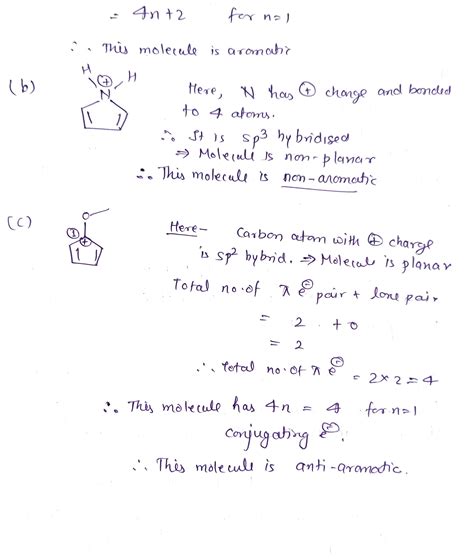 = 4n+2 for n=1
∴ This molecule is aromatic
(b) H H N ⊕ Here, N has ⊕ charge and bonded
to 4 atoms.
∴ It is sp³ hybridised
⇒ Molecule is non-planar
∴ This molecule is non-aromatic
(c) O ⊕ Here- Carbon atom with ⊕ charge
is sp² hybrid. ⇒ Molecule is planar
Total no. of π e⊖ pair + lone pair
= 2 + 0
= 2
∴ Total no. of π e⊖ = 2×2 = 4
∴ This molecule has 4n = 4 for n=1
conjugating e⊖.
∴ This molecule is anti-aromatic.